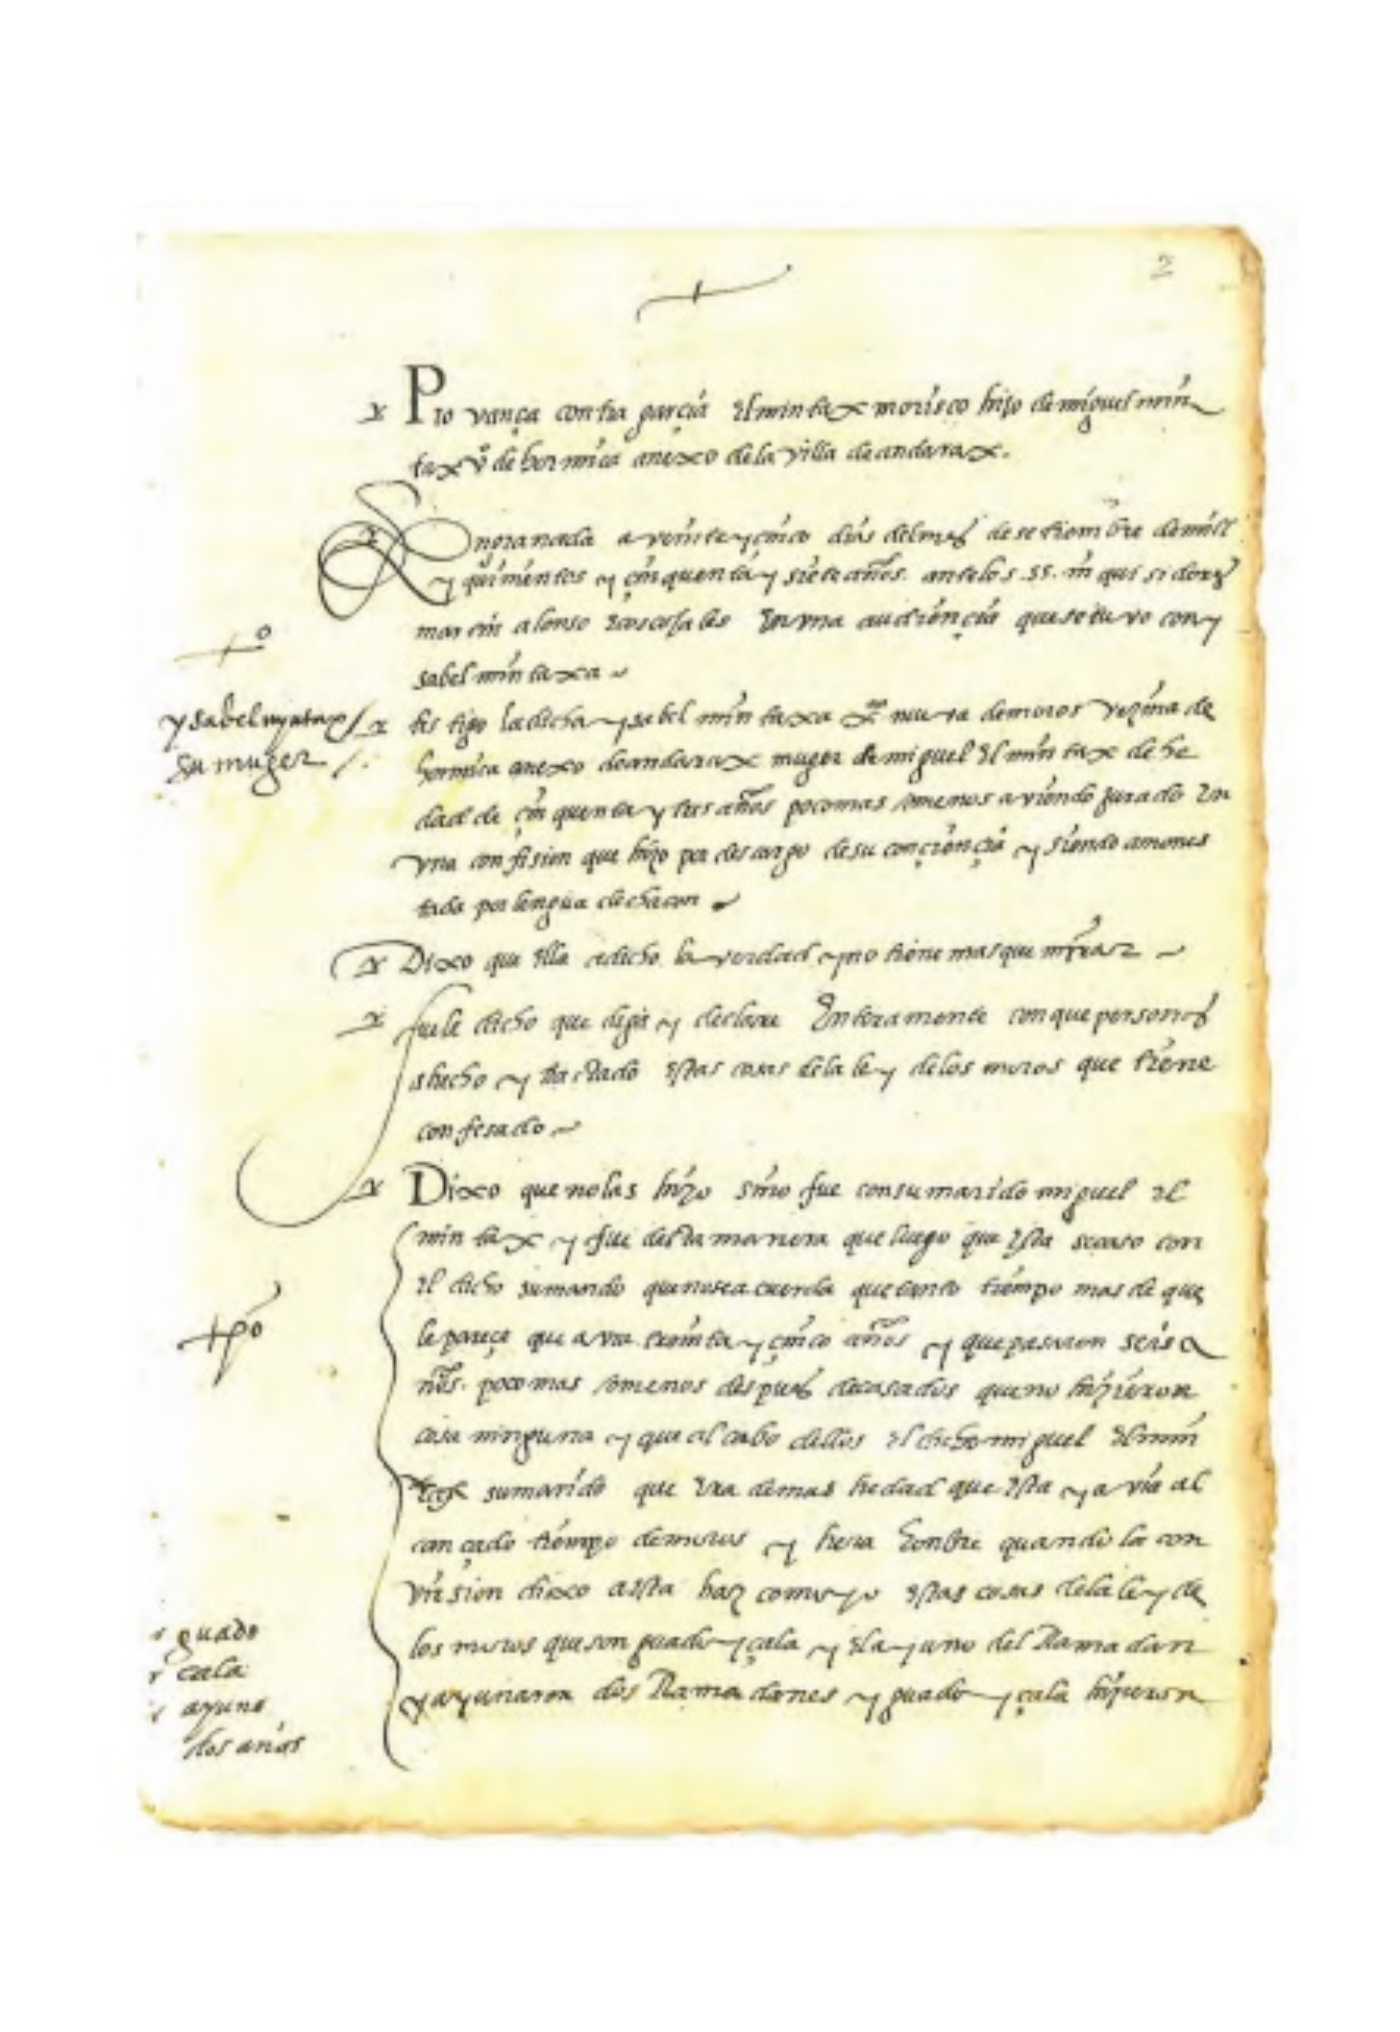 2
Provança contra garçia el mintax morisco hijo de miguel min
tax vº de hormica anexo de la villa de andarax.
En granada a veinte y çinco dias del mes de setiembre de mill
y quinientos y çinquenta y siete años. ante los .ss. inquisidores
martin alonso y coscojales en una audiençia que se tuvo con y
sabel mintaxa
ysabel myntax
su muger
testigo la dicha ysabel mintaxa nueva de moros vezina de
hormica anexo de andarax muger de miguel el mintax de he
dad de çinquenta y tres años poco mas o menos aviendo jurado en
una confision que hizo por descargo de su conçiençia y siendo amones
tada por lengua de chacon
Dixo que ella a dicho la verdad y no tiene mas que mirar
fuele dicho que diga y declare enteramente con que personas
a hecho y tractado estas cosas de la ley de los moros que tiene
confesado
Dixo que no las hizo sino fue con su marido miguel el
mintax y fue desta manera que luego que esta se caso con
el dicho su marido que no se acuerda que tanto tiempo mas de que
le pareçe que a vra treinta y çinco años y que pasaron seis a
ños. poco mas o menos despues de casados que no hizieron
cosa ninguna y que al cabo dellos el dicho miguel el min
tax su marido que era de mas hedad que esta y avia al
cançado tiempo de moros y hera honbre quando la con
version dixo a esta haz como yo estas cosas de la ley de
los moros que son guado y çala y el ayuno del Ramadan
y ayunaron dos Ramadanes y guado y çala hizieron
guado
cala
ayuno
dos años